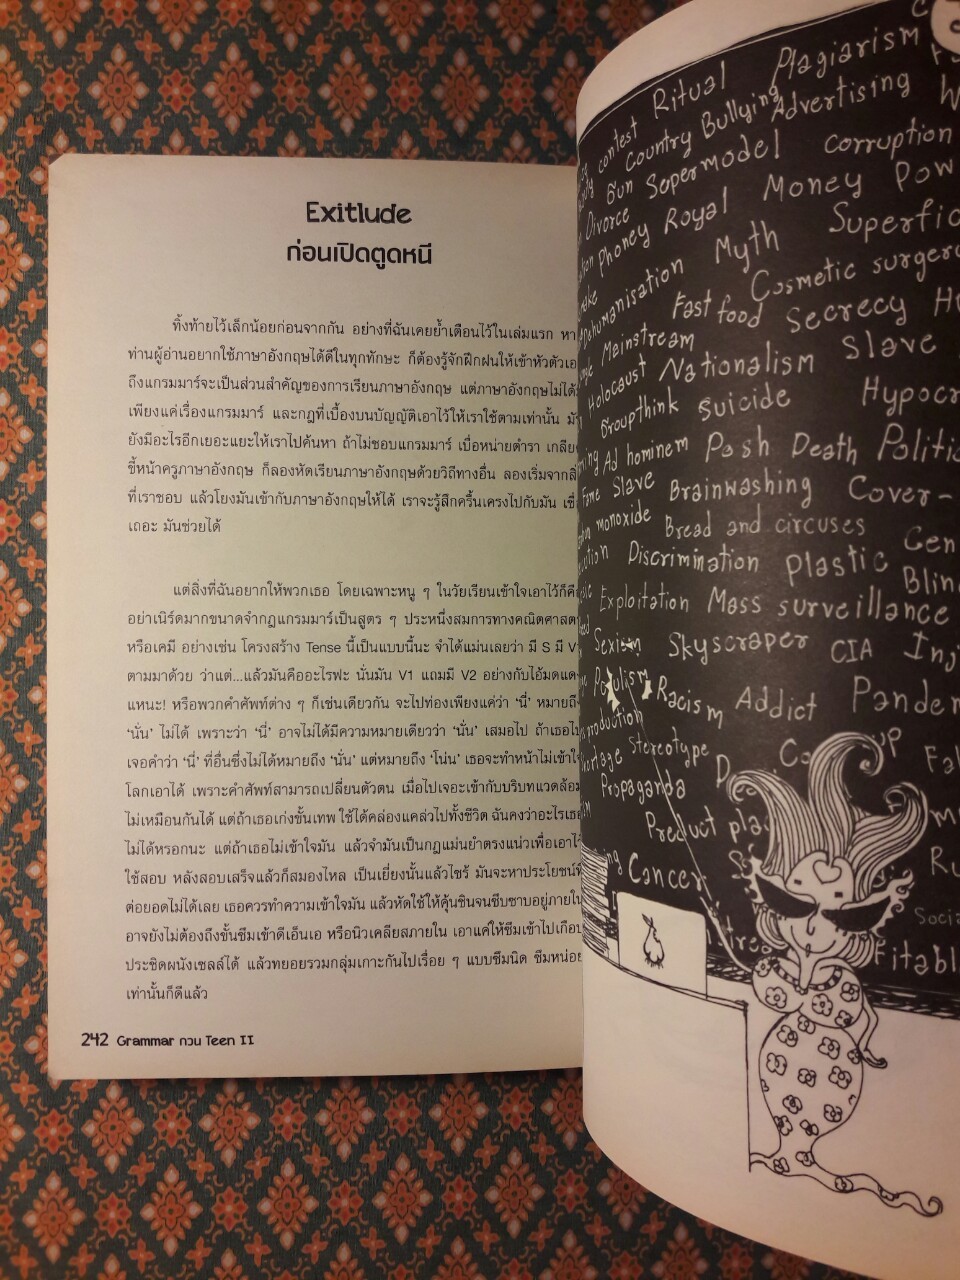 Exitlude
ก่อนเปิดตูดหนี
ทิ้งท้ายไว้เล็กน้อยก่อนจากกัน อย่างที่ฉันเคยย้ำเตือนไว้ในเล่มแรก หา
ท่านผู้อ่านอยากใช้ภาษาอังกฤษได้ดีในทุกทักษะ ก็ต้องรู้จักฝึกฝนให้เข้าหัวตัวเอ
ถึงแกรมมาร์จะเป็นส่วนสำคัญของการเรียนภาษาอังกฤษ แต่ภาษาอังกฤษไม่ได้
เพียงแค่เรื่องแกรมมาร์ และกฎที่เบื้องบนบัญญัติเอาไว้ให้เราใช้ตามเท่านั้น
ยังมีอะไรอีกเยอะแยะให้เราไปค้นหา ถ้าไม่ชอบแกรมมาร์ เบื่อหน่ายตำรา เกลีย
ขี้หน้าครูภาษาอังกฤษ ก็ลองหัดเรียนภาษาอังกฤษด้วยวิธีทางอื่น ลองเริ่มจาก
ที่เราชอบ แล้วโยงมันเข้ากับภาษาอังกฤษให้ได้ เราจะรู้สึกครื้นเครงไปกับมัน
เถอะ มันช่วยได้
แต่สิ่งที่ฉันอยากให้พวกเธอ โดยเฉพาะหนู ๆ ในวัยเรียนเข้าใจเอาไว้ก็คือ
อย่าเนิร์ดมากขนาดจำกฎแกรมมาร์เป็นสูตร ๆ ประหนึ่งสมการทางคณิตศาสต
หรือเคมี อย่างเช่น โครงสร้าง Tense นี้เป็นแบบนี้นะ จำได้แม่นเลยว่า มี S มี V
ตามมาด้วย ว่าแต่...แล้วมันคืออะไรฟะ นั่นมัน V1 แถมมี V2 อย่างกับไอ้มดแด
แหนะ! หรือพวกคำศัพท์ต่าง ๆ ก็เช่นเดียวกัน จะไปท่องเพียงแค่ว่า ‘นี่’ หมายถึง
‘นั่น’ ไม่ได้ เพราะว่า ‘นี่’ อาจไม่ได้มีความหมายเดียวว่า ‘นั่น’ เสมอไป ถ้าเธอไป
เจอคำว่า ‘นี่’ ที่อื่นซึ่งไม่ได้หมายถึง ‘นั่น’ แต่หมายถึง ‘โน่น’ เธอจะทำหน้าไม่เข้าใจ
โลกเอาได้ เพราะคำศัพท์สามารถเปลี่ยนตัวตน เมื่อไปเจอะเข้ากับบริบทแวดล้อม
ไม่เหมือนกันได้ แต่ถ้าเธอเก่งขั้นเทพ ใช้ได้คล่องแคล่วไปทั้งชีวิต ฉันคงว่าอะไรเธอ
ไม่ได้หรอกนะ แต่ถ้าเธอไม่เข้าใจมัน แล้วจำมันเป็นกฎแม่นยำตรงแน่วเพื่อเอาไว้
ใช้สอบ หลังสอบเสร็จแล้วก็สมองไหล เป็นเยี่ยงนั้นแล้วไซร้ มันจะหาประโยชน์
ต่อยอดไม่ได้เลย เธอควรทำความเข้าใจมัน แล้วหัดใช้ให้คุ้นชินจนซึบซาบอยู่ภายใน
อาจยังไม่ต้องถึงขั้นซึมเข้าดีเอ็นเอ หรือนิวเคลียสภายใน เอาแค่ให้ซึมเข้าไปเกือบ
ประชิดผนังเซลล์ได้ แล้วทยอยรวมกลุ่มเกาะกันไปเรื่อย ๆ แบบซึมนิด ซึมหน่อย
เท่านั้นก็ดีแล้ว
242 Grammar กวน Teen II
Ritual Plagiarism
contest Country Bullying Advertising
Gun Supermodel Corruption
Divorce Royal Money Pow
Phoney Myth Superfic
Dehumanisation Cosmetic surgery
Fast food Secrecy
Meinstream Slave
Holocaust Nationalism Hypocr
Groupthink Suicide Politic
Ad hominem Posh Death
Fame Slave Brainwashing Cover-
monoxide Bread and circuses Cen
Discrimination Plastic Blin
Exploitation Mass surveillance
Sexism Skyscraper CIA Inj
Populism Racism Addict Pandem
Stereotype
Propaganda
Product
Cancer